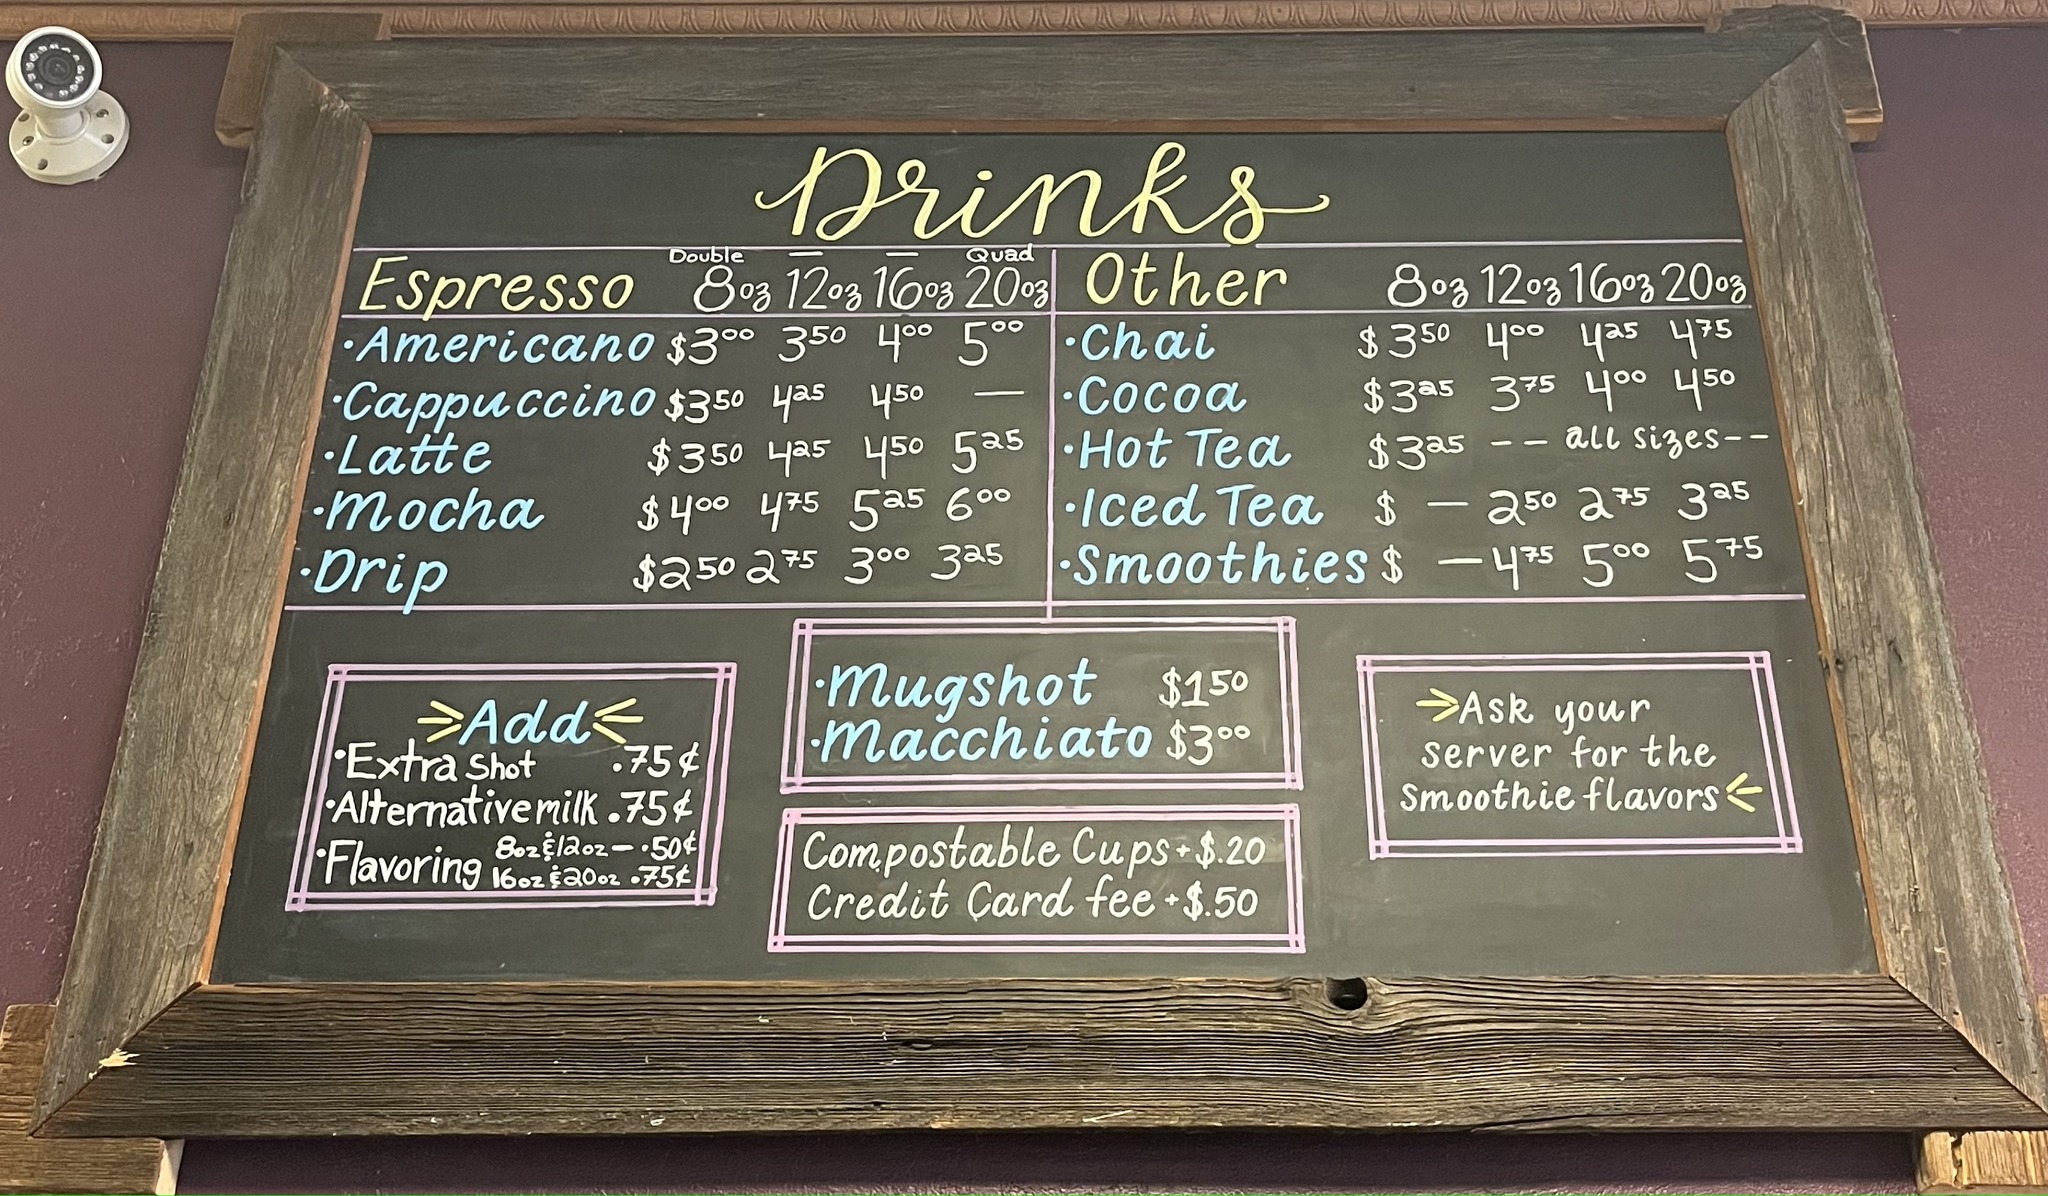 Drinks
Espresso Double 8oz — 12oz — 16oz Quad 20oz
·Americano $3⁰⁰ 3⁵⁰ 4⁰⁰ 5⁰⁰
·Cappuccino $3⁵⁰ 4²⁵ 4⁵⁰ —
·Latte $3⁵⁰ 4²⁵ 4⁵⁰ 5²⁵
·Mocha $4⁰⁰ 4⁷⁵ 5²⁵ 6⁰⁰
·Drip $2⁵⁰ 2⁷⁵ 3⁰⁰ 3²⁵
Other 8oz 12oz 16oz 20oz
·Chai $3⁵⁰ 4⁰⁰ 4²⁵ 4⁷⁵
·Cocoa $3²⁵ 3⁷⁵ 4⁰⁰ 4⁵⁰
·Hot Tea $3²⁵ -- all sizes--
·Iced Tea $ — 2⁵⁰ 2⁷⁵ 3²⁵
·Smoothies $ — 4⁷⁵ 5⁰⁰ 5⁷⁵
Add
·Extra Shot .75¢
·Alternative milk .75¢
·Flavoring 8oz & 12oz — .50¢
16oz & 20oz .75¢
·Mugshot $1⁵⁰
·Macchiato $3⁰⁰
Compostable Cups + $.20
Credit Card fee + $.50
Ask your
server for the
smoothie flavors